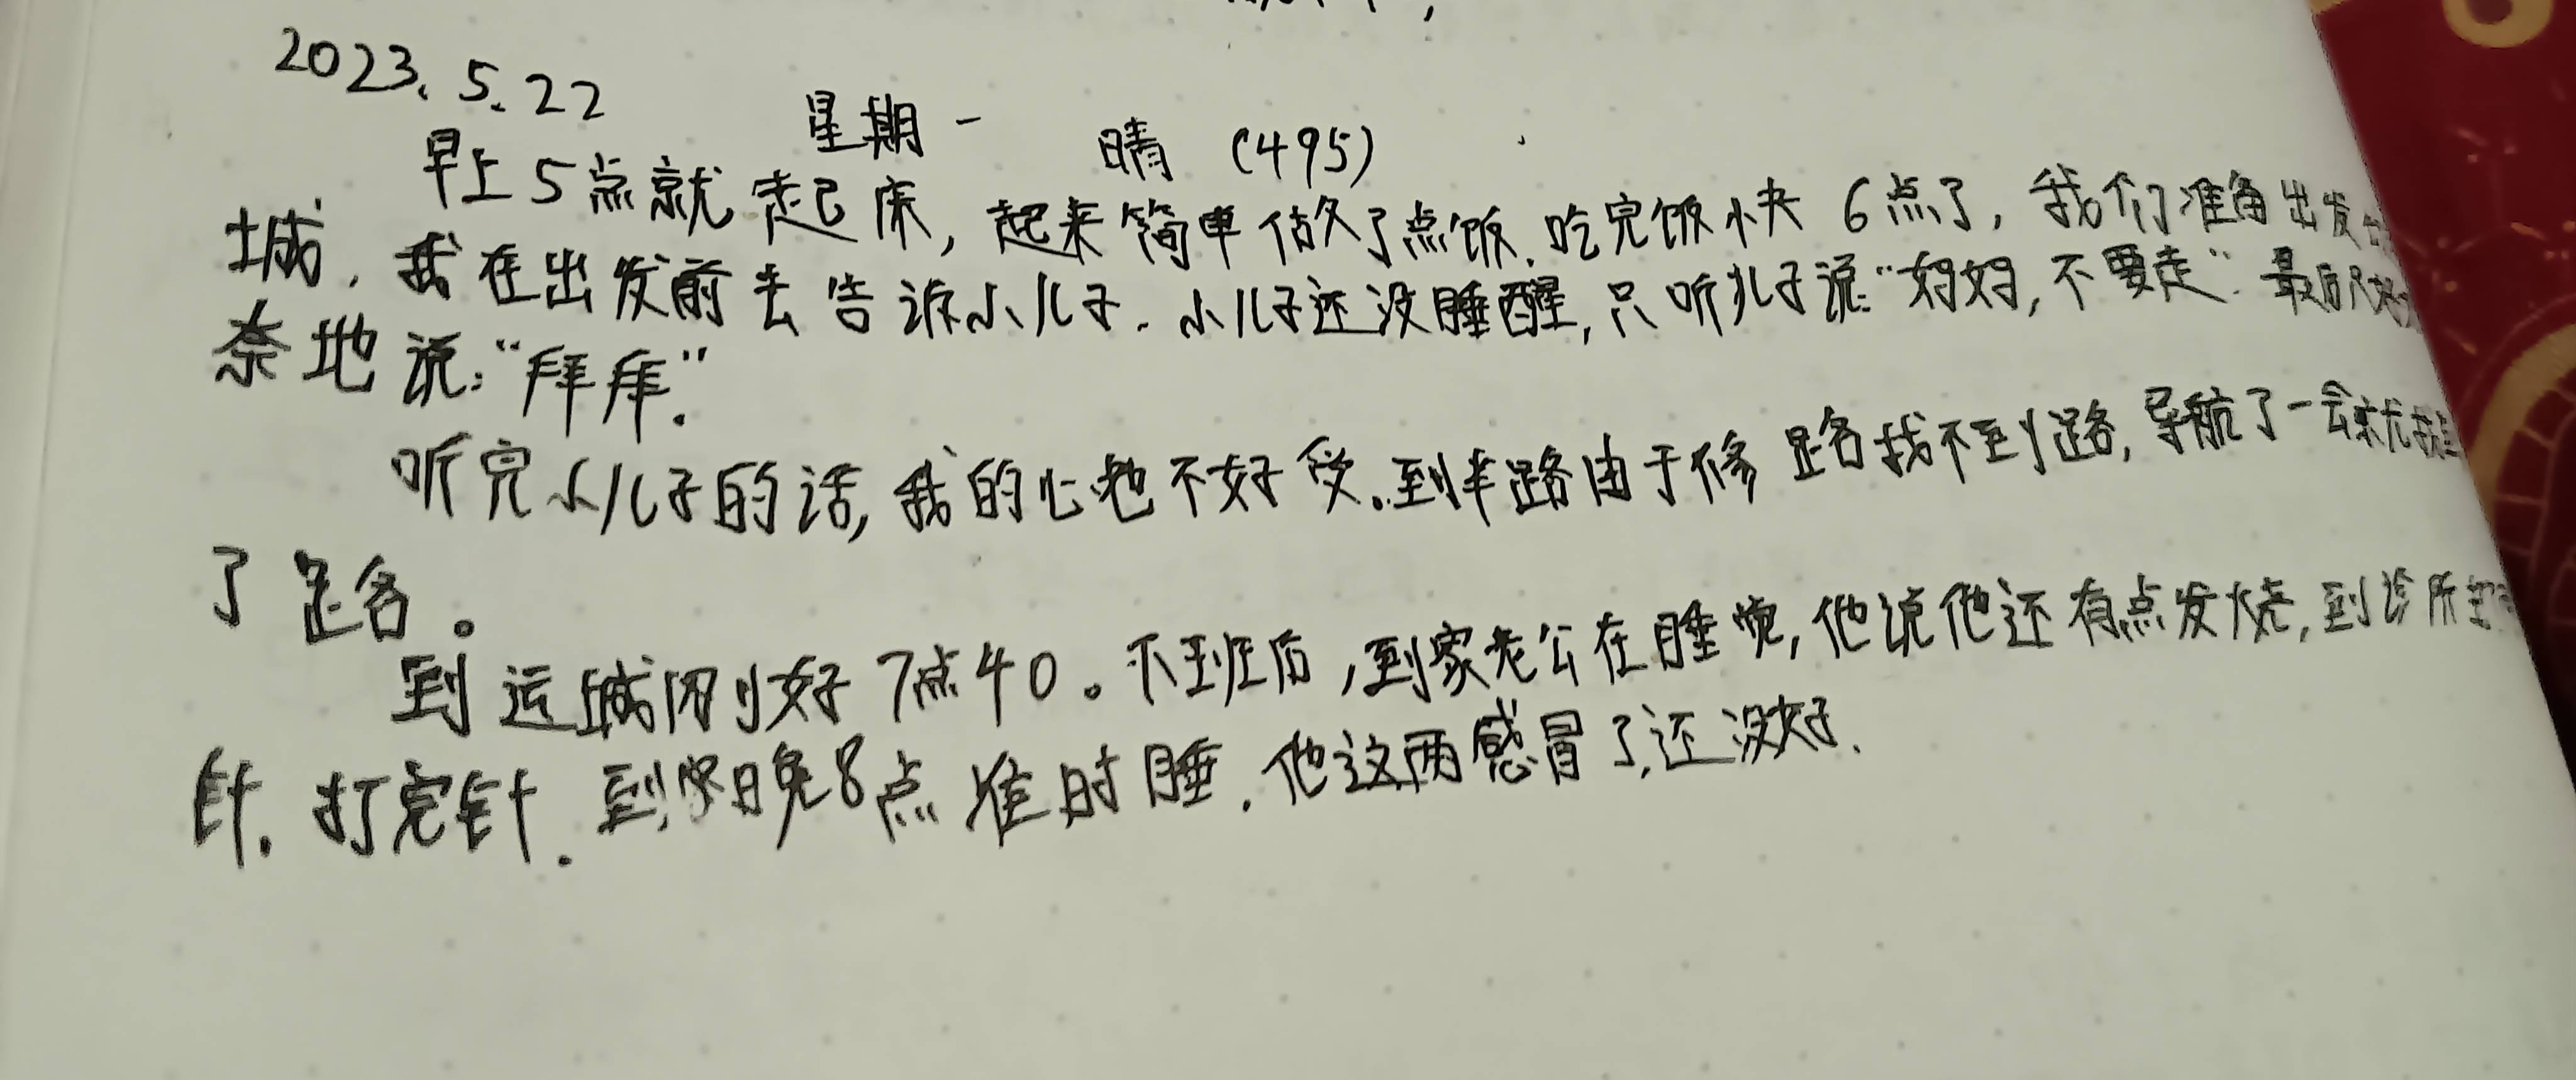 2023.5.22 星期一 晴 (495)
早上5点就起床,起来简单做了点饭.吃完饭快6点了,我们准备出发
城.我在出发前去告诉小儿子.小儿子还没睡醒,只听儿子说:"妈妈,不要走".最后只好
奈地说:"拜拜."
听完小儿子的话,我的心也不好受.到半路由于修路找不到路,导航了一会就
了路。
到运城刚好7点40。下班后,到家老公在睡觉,他说他还有点发烧,到诊所
针.打完针.到晚8点准时睡.他这两感冒了,还没好.